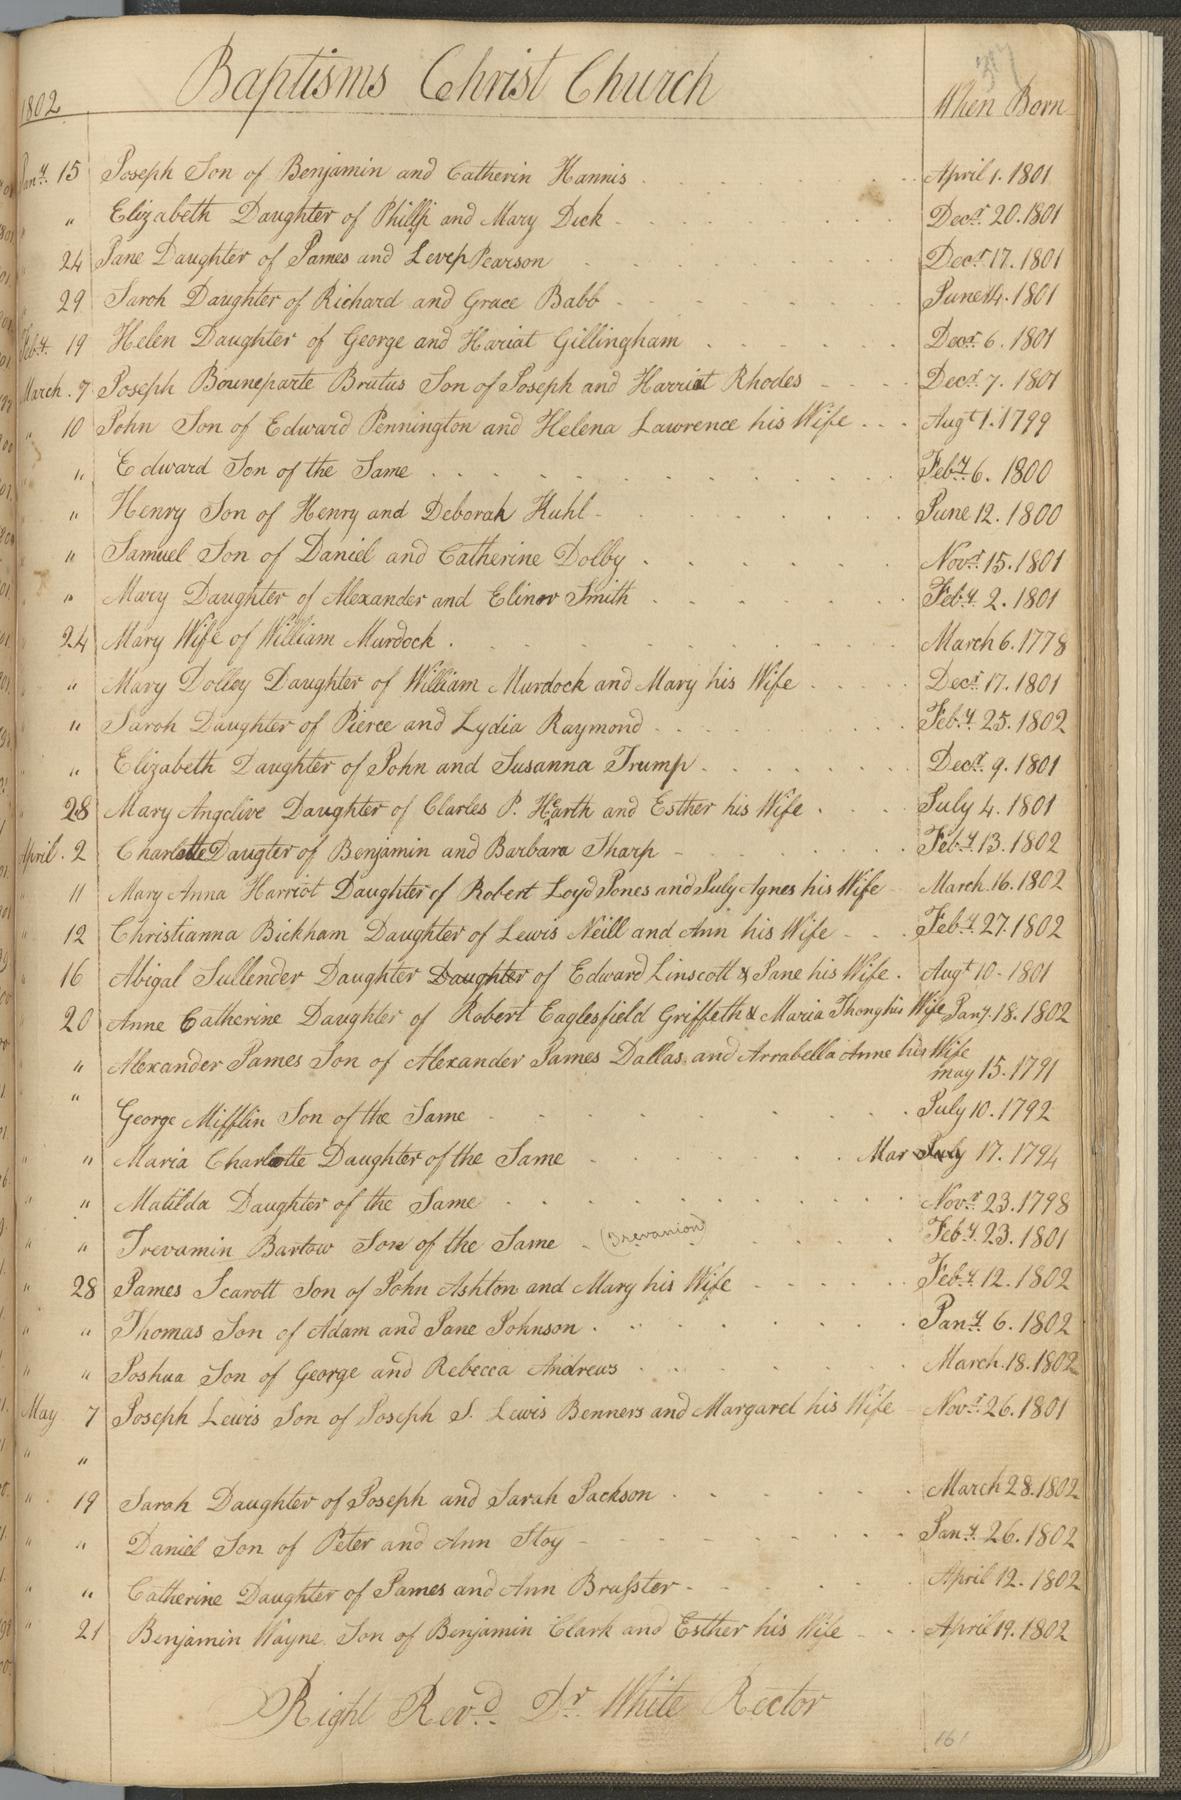 317
Baptisms Christ Church
1802
When Born
Jany. 15 Joseph Son of Benjamin and Catherin Hannis April 1. 1801
" Elizabeth Daughter of Phillip and Mary Dick Decr. 20. 1801
24 Jane Daughter of James and Pearson Decr. 17. 1801
29 Sarah Daughter of Richard and Grace Babb June 14. 1801
Feby. 19 Helen Daughter of George and Hariat Gillingham Decr. 6. 1801
March . 7 Joseph Bouneparte Brutus Son of Joseph and Harriet Rhodes Decr. 7. 1801
" 10 John Son of Edward Pennington and Helena Lawrence his Wife Augt 1. 1799
" Edward Son of the Same Feby. 6. 1800
" Henry Son of Henry and Deborah Kuhl June 12. 1800
" Samuel Son of Daniel and Catherine Dolby Novr. 15. 1801
" Mary Daughter of Alexander and Elinor Smith Feby. 2. 1801
24 Mary Wife of William Murdock March 6. 1778
" Mary Dolley Daughter of William Murdock and Mary his Wife Decr. 17. 1801
" Sarah Daughter of Pierce and Lydia Raymond Feby. 25. 1802
" Elizabeth Daughter of John and Susanna Trump Decr. 9. 1801
" 28 Mary Angelive Daughter of Clarles P. Hearth and Esther his Wife July 4. 1801
April . 2 Charlotte Daugter of Benjamin and Barbara Tharp Feby. 13. 1802
" 11 Mary Anna Harriot Daughter of Robert Loyd Jones and July Agnes his Wife March. 16. 1802
" 12 Christianna Bickham Daughter of Lewis Neill and Ann his Wife Feby. 27. 1802
" 16 Abigal Sullender Daughter Daughter of Edward Linscott & Jane his Wife. Augt 10. 1801
" 20 Anne Catherine Daughter of Robert Eaglesfield Griffeth & Maria Thong his Wife Jany. 18. 1802
" " Alexander James Son of Alexander James Dallas and Arrabella Anne his Wife
may 15. 1791
" George Mifflin Son of the Same July 10. 1792
" " Maria Charlotte Daughter of the Same Mar July 17. 1794
" " Matilda Daughter of the Same Novr. 23. 1798
" " Trevamin Bartow Son of the Same (Trevanion) Feby. 23. 1801
" 28 James Scarott Son of John Ashton and Mary his Wife Feby. 12. 1802
" " Thomas Son of Adam and Jane Johnson Jany. 6. 1802
" " Joshua Son of George and Rebecca Andrews March. 18. 1802
May 7 Joseph Lewis Son of Joseph S. Lewis Benners and Margaret his Wife Novr. 26. 1801
" "
" 19 Sarah Daughter of Joseph and Sarah Jackson March 28. 1802
" " Daniel Son of Peter and Ann Stoy Jany. 26. 1802
" " Catherine Daughter of James and Ann Brusster April 12. 1802
" 21 Benjamin Wayne Son of Benjamin Clark and Esther his Wife April 19. 1802
Right Revd. Dr. White Rector
161